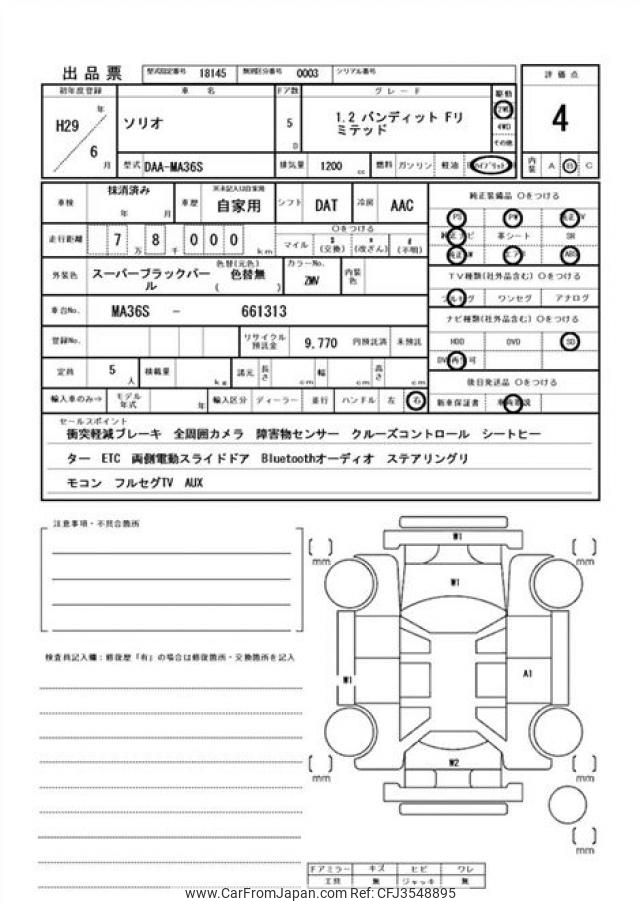 出品票 型式指定番号 18145 類別区分番号 0003 シリアル番号
初年度登録 車名 ドア数 グレード 駆動 評価点
H29 年 ソリオ 5 D 1.2 バンディット Fリミテッド 2WD 4WD その他 4
6 月 型式 DAA-MA36S 排気量 1200 cc 燃料 ガソリン 軽油 ハイブリッド 内装 A B C
車検 抹消済み 年 月 車歴 ※未記入は自家用 自家用 シフト DAT 冷房 AAC 純正装備品 ○をつける
PS PW 純正TV
走行距離 7 万 8 千 0 0 0 km ○をつける マイル $ (交換) * (改ざん) # (不明) 純正ナビ 革シート SR
純正AW エアB ABS
外装色 スーパーブラックパール 色替(元色) 色替無 ( ) カラーNo. ZMV 内装色 TV種類(社外品含む) ○をつける
フルセグ ワンセグ アナログ
車台No. MA36S - 661313 ナビ種類(社外品含む) ○をつける
登録No. リサイクル預託金 9,770 円預託済 未預託 HDD DVD SD
DVD再生可
定員 5 人 積載量 kg 諸元 長さ cm 幅 cm 高さ cm 後日発送品 ○をつける
輸入車のみ⇒ モデル年式 年 輸入区分 ディーラー 並行 ハンドル 左 右 新車保証書 車両取説
セールスポイント
衝突軽減ブレーキ 全周囲カメラ 障害物センサー クルーズコントロール シートヒー
ター ETC 両側電動スライドドア Bluetoothオーディオ ステアリングリ
モコン フルセグTV AUX
注意事項・不具合箇所
検査員記入欄:修復歴「有」の場合は修復箇所・交換箇所を記入
W1
[ ] mm [ ] mm
W1
W1 A1
W2
[ ] mm [ ] mm
[ ] mm
ドアミラー キズ ヒビ ワレ
工具 無 ジャッキ 無
www.CarFromJapan.com Ref:CFJ3548895